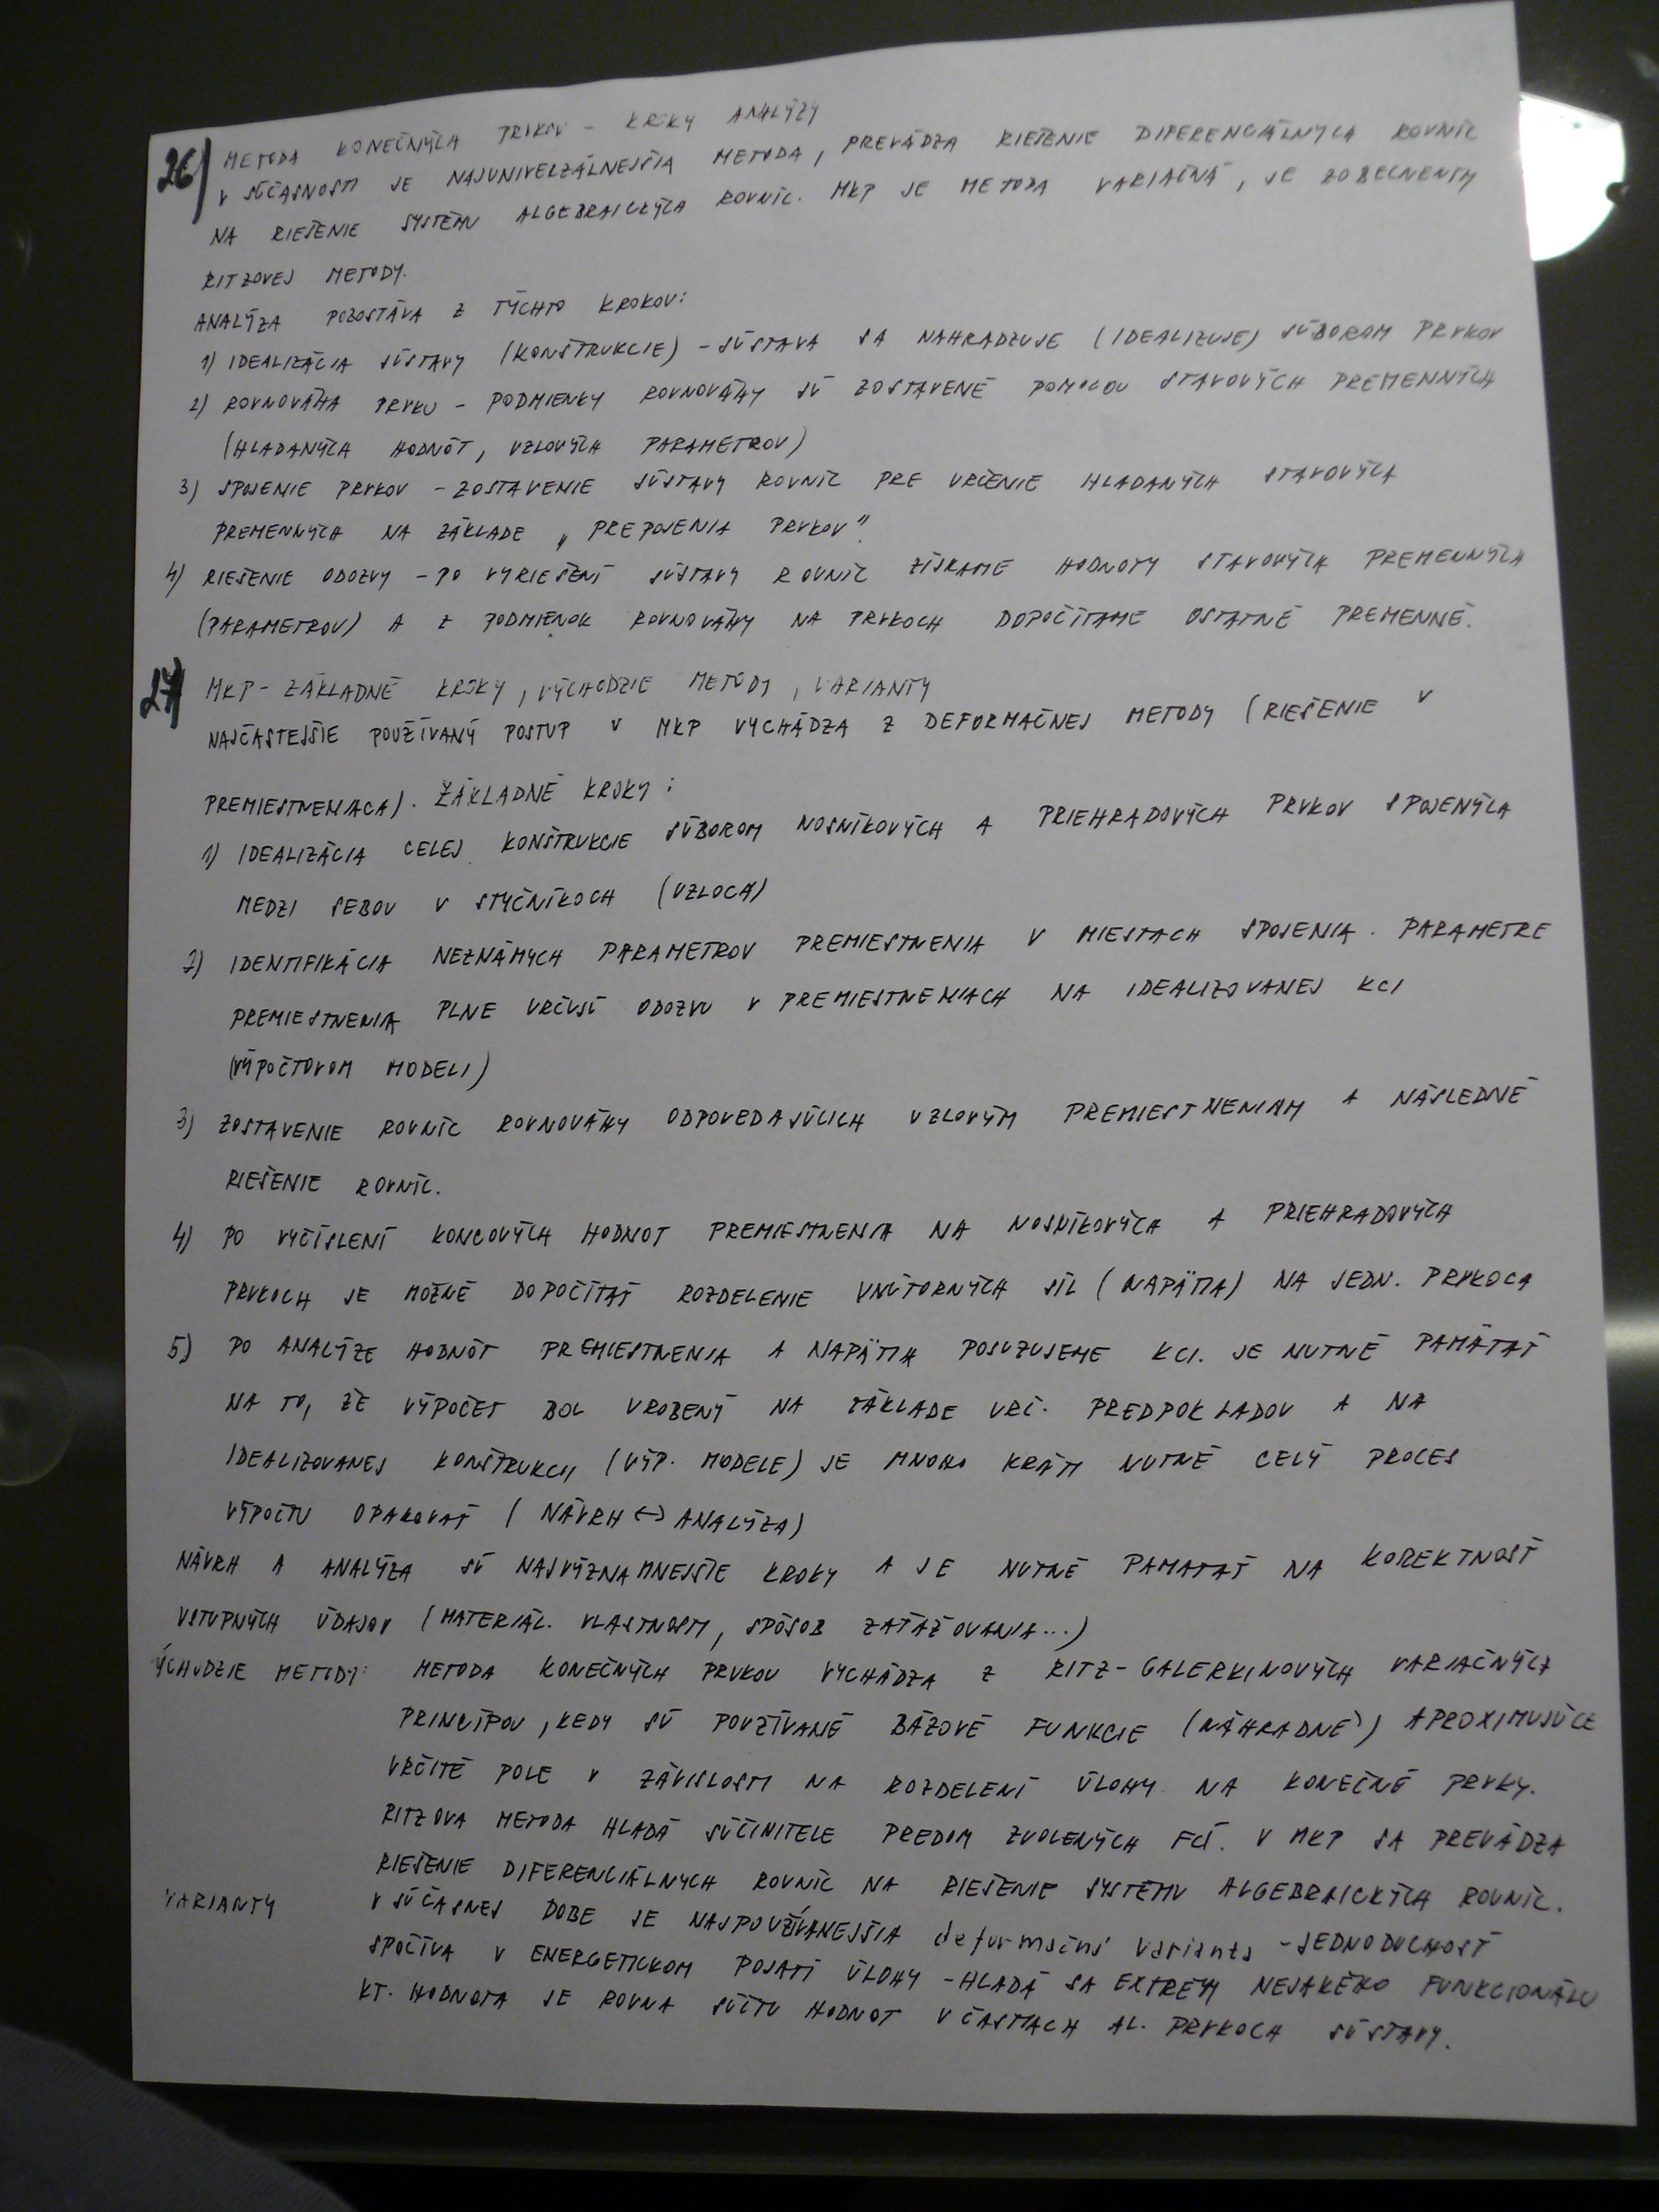 26) METODA KONEČNÝCH PRVKOV - KROKY ANALÝZY
V SÚČASNOSTI JE NAJUNIVERZÁLNEJŠIA METODA, PREVÁDZA RIEŠENIE DIFERENCIÁLNYCH ROVNÍC
NA RIEŠENIE SYSTÉMU ALGEBRAICKÝCH ROVNÍC. MKP JE METODA VARIAČNÁ, JE ZOBECNENÍM
RITZOVEJ METODY.
ANALÝZA POZOSTÁVA Z TÝCHTO KROKOV:
1) IDEALIZÁCIA SÚSTAVY (KONŠTRUKCIE) - SÚSTAVA SA NAHRADZUJE (IDEALIZUJE) SÚBOROM PRVKOV
2) ROVNOVÁHA PRVKU - PODMIENKY ROVNOVÁHY SÚ ZOSTAVENÉ POMOCOU STAVOVÝCH PREMENNÝCH
(HLADANÝCH HODNÔT, UZLOVÝCH PARAMETROV)
3) SPOJENIE PRVKOV - ZOSTAVENIE SÚSTAVY ROVNÍC PRE URČENIE HLADANÝCH STAVOVÝCH
PREMENNÝCH NA ZÁKLADE „PREPOJENIA PRVKOV".
4) RIEŠENIE ODOZVY - PO VYRIEŠENÍ SÚSTAVY ROVNÍC ZÍSKAME HODNOTY STAVOVÝCH PREMENNÝCH
(PARAMETROV) A Z PODMIENOK ROVNOVÁHY NA PRVKOCH DOPOČÍTAME OSTATNÉ PREMENNÉ.
27) MKP - ZÁKLADNÉ KROKY, VÝCHODZIE METÓDY, VARIANTY
NAJČASTEJŠIE POUŽÍVANÝ POSTUP V MKP VYCHÁDZA Z DEFORMAČNEJ METODY (RIEŠENIE V
PREMIESTNENIACH). ZÁKLADNÉ KROKY:
1) IDEALIZÁCIA CELEJ KONŠTRUKCIE SÚBOROM NOSNÍKOVÝCH A PRIEHRADOVÝCH PRVKOV SPOJENÝCH
MEDZI SEBOU V STYČNÍKOCH (UZLOCH)
2) IDENTIFIKÁCIA NEZNÁMYCH PARAMETROV PREMIESTNENIA V MIESTACH SPOJENIA. PARAMETRE
PREMIESTNENIA PLNE URČUJÍ ODOZVU V PREMIESTNENIACH NA IDEALIZOVANEJ KCI
(VÝPOČTOVOM MODELI)
3) ZOSTAVENIE ROVNÍC ROVNOVÁHY ODPOVEDAJÚCICH UZLOVÝM PREMIESTNENIAM A NÁSLEDNÉ
RIEŠENIE ROVNÍC.
4) PO VYČÍSLENÍ KONCOVÝCH HODNOT PREMIESTNENIA NA NOSNÍKOVÝCH A PRIEHRADOVÝCH
PRVKOCH JE MOŽNÉ DOPOČÍTAŤ ROZDELENIE VNÚTORNÝCH SÍL (NAPÄTIA) NA JEDN. PRVKOCH
5) PO ANALÝZE HODNÔT PREMIESTNENIA A NAPÄTIA POSUZUJEME KCI. JE NUTNÉ PAMÄTAŤ
NA TO, ŽE VÝPOČET BOL UROBENÝ NA ZÁKLADE URČ. PREDPOKLADOV A NA
IDEALIZOVANEJ KONŠTRUKCII (VÝP. MODELE) JE MNOHO KRÁTI NUTNÉ CELÝ PROCES
VÝPOČTU OPAKOVAŤ (NÁVRH ↔ ANALÝZA)
NÁVRH A ANALÝZA SÚ NAJVÝZNAMNEJŠIE KROKY A JE NUTNÉ PAMATAŤ NA KOREKTNOSŤ
VSTUPNÝCH ÚDAJOV (MATERIÁL. VLASTNOSTI, SPÔSOB ZAŤAŽOVANIA...)
ÝCHODZIE METODY: METODA KONEČNÝCH PRVKOV VYCHÁDZA Z RITZ-GALERKINOVÝCH VARIAČNÝCH
PRINCÍPOV, KEDY SÚ POUŽÍVANÉ BÁZOVÉ FUNKCIE (NÁHRADNÉ) APROXIMUJÚCE
URČITÉ POLE V ZÁVISLOSTI NA ROZDELENÍ ÚLOHY NA KONEČNÉ PRVKY.
RITZOVA METODA HLADÁ SÚČINITELE PREDOM ZVOLENÝCH FCÍ. V MKP SA PREVÁDZA
RIEŠENIE DIFERENCIÁLNYCH ROVNÍC NA RIEŠENIE SYSTÉMU ALGEBRAICKÝCH ROVNÍC.
VARIANTY V SÚČASNEJ DOBE JE NAJPOUŽÍVANEJŠIA deformační varianta - JEDNODUCHOSŤ
SPOČÍVA V ENERGETICKOM POJATÍ ÚLOHY - HLADÁ SA EXTRÉM NEJAKÉHO FUNKCIONÁLU
KT. HODNOTA JE ROVNA SÚČTU HODNOT V ČASTIACH AL. PRVKOCH SÚSTAVY.